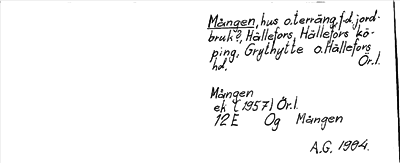 Mången, hus o. terräng, f.d. jord-
bruk?, Hällefors, Hällefors kö-
ping, Grythytte o. Hällefors
hd. Ör.l.
Mången
ek (1957) Ör.l.
12 E Og Mången
A.G. 1984.